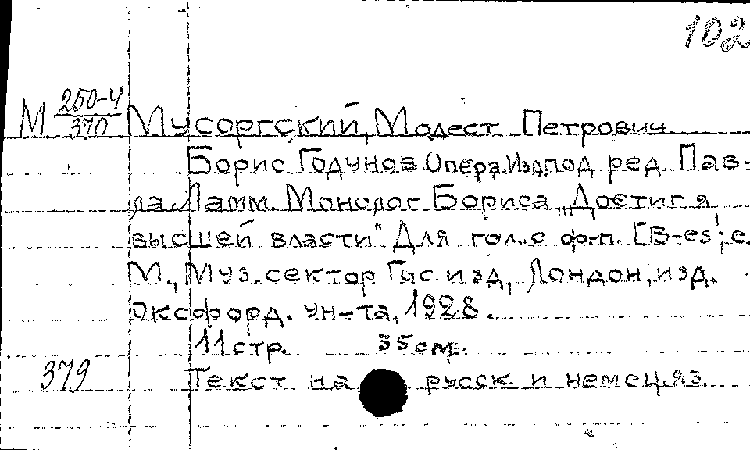 102
М 250-4/370 Мусоргский, Модест Петрович
Борис Годунов. Опера. Изд. под ред. Пав-
ла Ламм. Монолог Бориса "Достиг я
высшей власти". Для гол. с ф-п. [B-es'; e.
М., Муз. сектор Гос. изд, Лондон, изд.
Оксфорд. ун-та, 1928.
11 стр. 35 см.
379 Текст на русск. и немец. яз.